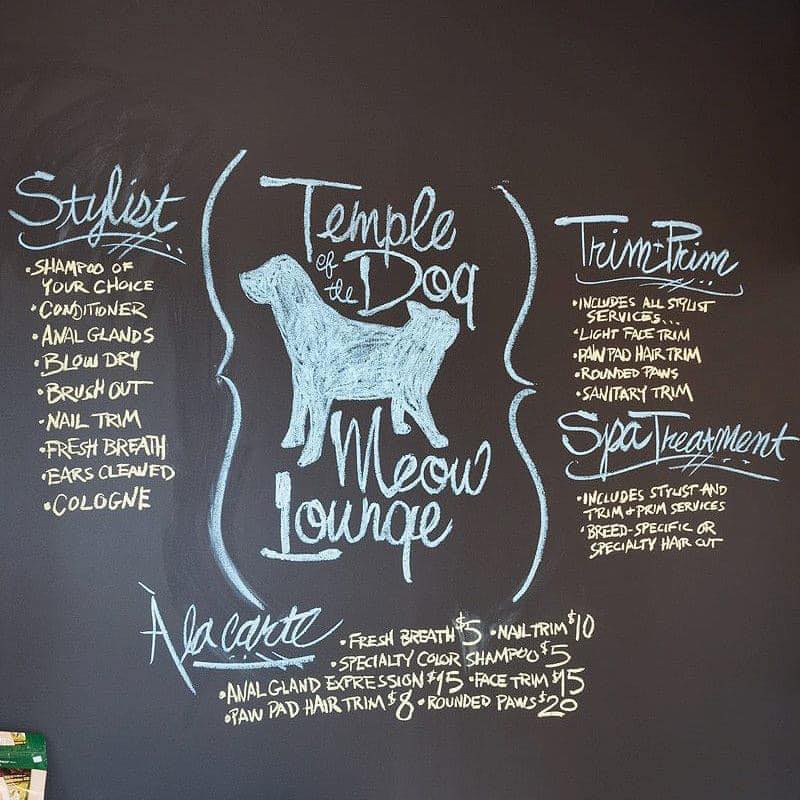 Stylist
• SHAMPOO OF
YOUR CHOICE
• CONDITIONER
• ANAL GLANDS
• BLOW DRY
• BRUSH OUT
• NAIL TRIM
• FRESH BREATH
• EARS CLEANED
• COLOGNE
Temple
of the Dog
Meow
Lounge
Trim + Prim
• INCLUDES ALL STYLIST
SERVICES...
• LIGHT FACE TRIM
• PAW PAD HAIR TRIM
• ROUNDED PAWS
• SANITARY TRIM
Spa Treatment
• INCLUDES STYLIST AND
TRIM + PRIM SERVICES
• BREED-SPECIFIC OR
SPECIALTY HAIR CUT
À la carte
• FRESH BREATH $5 • NAIL TRIM $10
• SPECIALTY COLOR SHAMPOO $5
• ANAL GLAND EXPRESSION $15 • FACE TRIM $15
• PAW PAD HAIR TRIM $8 • ROUNDED PAWS $20